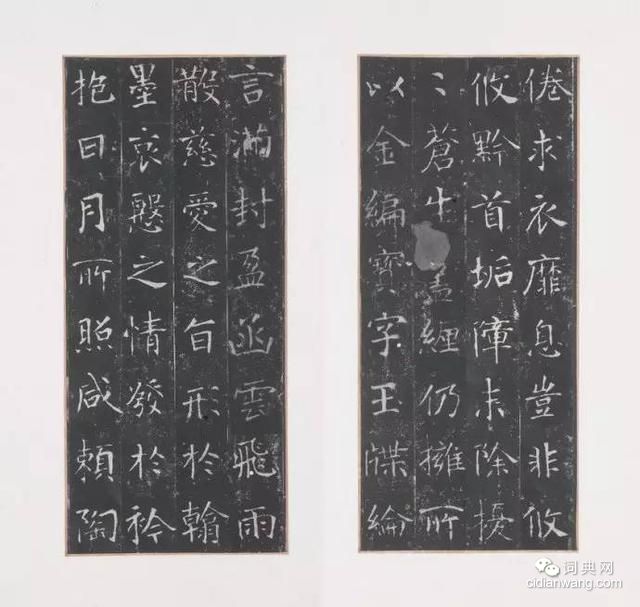 倦求衣靡息豈非攸
攸黔首垢障未除擾
〻蒼生盖纏仍擁所
以金編寶字玉牒綸
言滿封盈函雲飛雨
散慈愛之旨形於翰
墨哀慇之情發於衿
抱日月所照咸頼陶
词典网
cidianwang.com